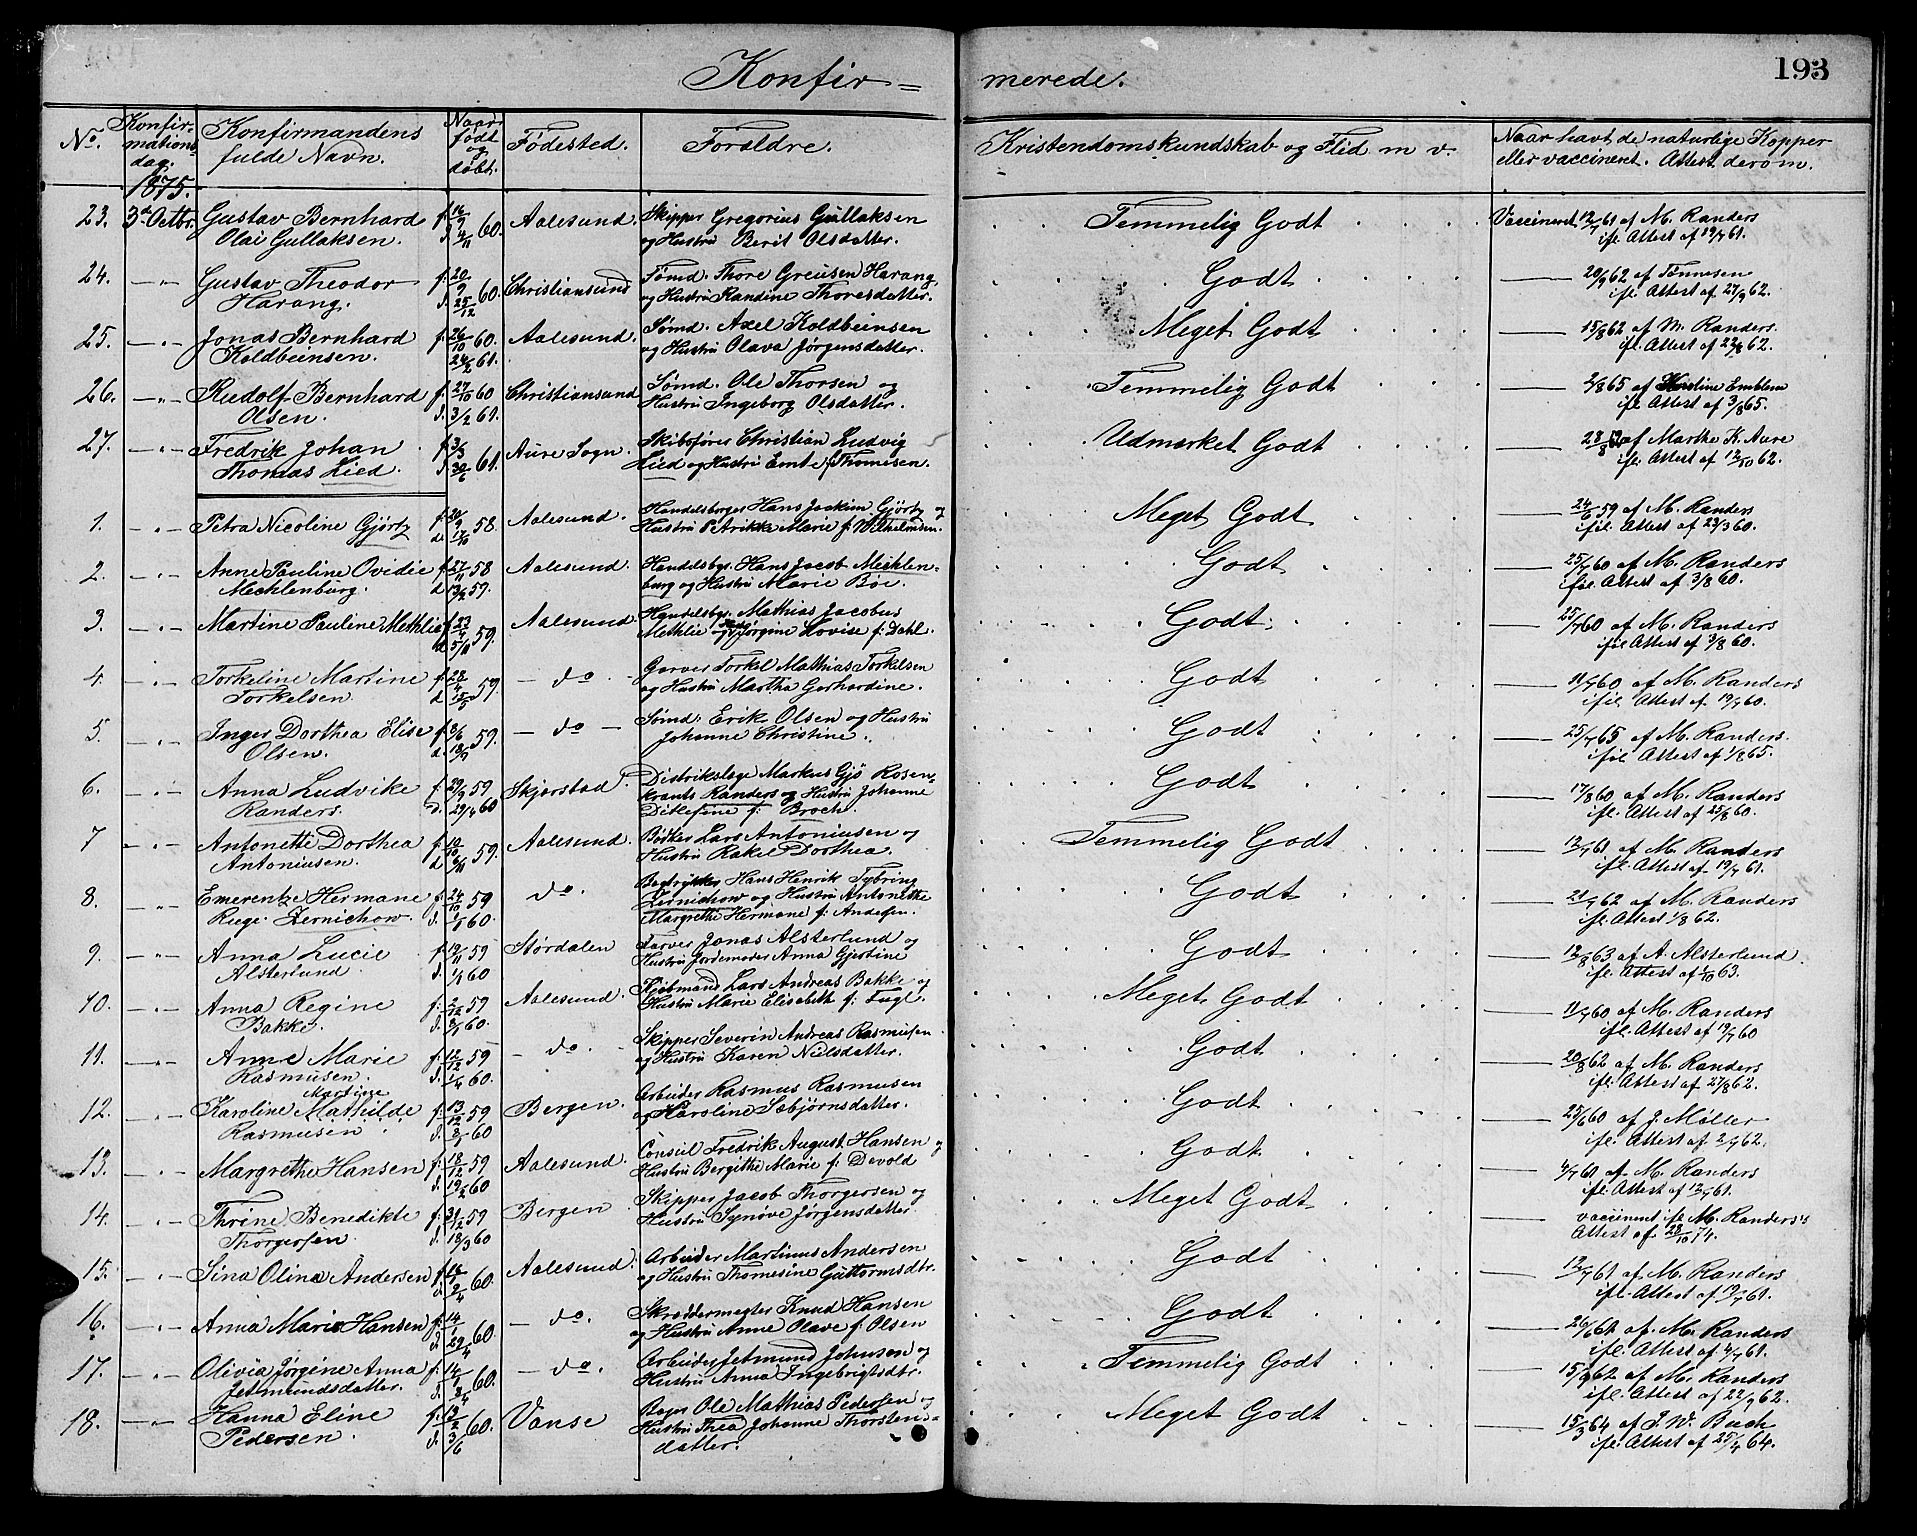 Konfir=
merede.
193
No.
Konfir-
mations
dag.
1875.
Konfirmandens
fulde Navn.
Naar
født
og
døbt.
Fødested.
Forældre.
Kristendomskundskab og Flid m v.
Naar havt de naturlige Kopper
eller vaccineret. Attest derom.
23. 3die Octbr. Gustav Bernhard f. 16/9 60. Aalesund. Skipper Gregorius Gullaksen Temmelig Godt Vaccineret 12/7 61 af M. Randers
Olai Gullaksen. d. 4/11 og Hustru Berit Olsdatter. ifl. Attest af 19/7 61.
24. —"— Gustav Theodor f. 20/9 60. Christiansund Sømd. Thore Greusen Harang Godt — 20/9 62 af Tønnesen
Harang. d. 25/12 og Hustru Randine Thoresdatter. ifl. Attest af 27/9 62.
25. —"— Jonas Bernhard f. 26/10 60. Aalesund. Sømd. Axel Koldbeinsen Meget Godt — 15/8 62 af M. Randers.
Koldbeinsen. 24/2 61. og Hustru Olava Jørgensdatter. ifl. Attest af 22/8 62.
26. —"— Rudolf Bernhard f. 27/10 60 Christiansund Sømd. Ole Thorsen og Temmelig Godt — 2/8 65 af Emblem
Olsen. d. 3/2 61. Hustru Ingeborg Olsdatter. ifl. Attest af 3/8 65.
27. —"— Fredrik Johan f. 3/3 61. Aure Sogn. Skibsfører Christian Ludvig Udmærket Godt — 28/8 af Marthe K. Aure
Thomas Lied. d. 30/6 Lied og Hustru f. Thomesen. ifl. Attest af 12/10 62.
1. —"— Petra Nicoline Gjørtz f. 20/9 58. Aalesund. Handelsborger Hans Joakim Gjørtz og Meget Godt — 24/6 59 af M. Randers
d. 17/10 Hustru Petrikke Marie f. Wilhelmsen. ifl. Attest af 23/3 60.
2. —"— Anne Pauline Ovidie f. 27/11 58 Aalesund. Handelsbgr. Hans Jacob Mecklen= Godt — 25/7 60 af M. Randers
Mechlenburg. d. 13/2 59. burg og Hustru Marie Bøe. ifl. Attest af 3/8 60.
3. —"— Martine Pauline Methlie f. 23/4 59. Aalesund. Handelsbgr. Mathias Jacobus Godt. — 25/7 60 af M. Randers
d. 5/6 Methlie og Jørgine Lovise f. Dahl. ifl. Attest af 3/8 60.
4. —"— Torkeline Martine f. 28/4 59. — do — Garver Torkel Mathias Torkelsen Godt — 11/7 60 af M. Randers
Torkelsen. d. 25/5 og Hustru Martha Gerhardine. ifl. Attest af 19/7 60.
5. —"— Inger Dorthea Elise f. 3/6 59. — do — Sømd. Erik Olsen og Hustru Godt — 25/7 65 af M. Randers.
Olsen. d. 18/7 Johanne Christine. ifl. Attest af 1/8 65.
6. —"— Anna Ludvike f. 29/9 59. Skjerstad. Distriktslæge Markus Gjø Rosen= Godt — 17/8 60 af M. Randers
Randers. d. 29/4 60 krants Randers og Hustru Johanne ifl. Attest af 25/8 60.
Ditlefine f. Broch.
7 —"— Antonette Dorthea f. 10/10 59. Aalesund. Bødker Lars Antoniusen og Temmelig Godt — 12/7 61 af M. Randers
Antoniusen. d. 6/11 Hustru Rakel Dorthea. ifl. Attest af 19/7 61.
8. —"— Emerentze Hermane f. 24/10 59 do. Bogtrykker Hans Henrik Tybring Godt — 21/7 62 af M. Randers
Ruge Zernichow. d. 1/1 60. Zernichow og Hustru Antonette ifl. Attest 1/8 62.
Margrethe Hermane f. Andesen.
9. —"— Anna Lucie f. 19/11 59 Størdalen Farver Jonas Alsterlund og Godt — 12/8 63 af A. Alsterlund
Alsterlund d. 1/1 60 Hustru Jordemoder Anna Gjertine ifl. Attest af 1/10 63.
10. —"— Anna Regine f. 2/12 59 Aalesund. Kjøbmand Lars Andreas Bakke og Meget Godt — 11/7 60 af M. Randers
Bakke. d. 8/1 60. Hustru Marie Elisabeth f. Fugl. ifl. Attest af 19/7 60
11. —"— Anne Marie f. 12/12 59 — do. Skipper Severin Andreas Rasmusen Godt — 20/8 62 af M. Randers
Rasmusen. d. 1/4 60. og Hustru Karen Nielsdatter. ifl. Attest af 27/8 62.
12. —"— Karoline Martine Mathilde f. 13/12 59 Bergen. Arbeider Rasmus Rasmusen Godt — 25/6 60 af J. Møller
Rasmusen d. 8/1 60 og Karoline Sæbjørnsdatter. ifl. Attest af 2/9 62.
13. —"— Margrethe Hansen f. 18/12 59 Aalesund. Consul Fredrik August Hansen og Godt — 4/7 61 af M. Randers
d. 19/2 60 Hustru Bergithe Marie f. Devold ifl. Attest af 12/7 61.
14. —"— Thrine Benedikte f. 31/12 59 Bergen Skipper Jacob Thorgersen og Meget Godt — vaccineret ifl. M. Randers's
Thorgersen d. 18/3 60 Hustru Synøve Jørgensdatter Attest af 28/10 74.
15. —"— Sina Olina Andersen f. 14/1 60. Aalesund. Arbeider Martinus Andersen Godt — 12/7 61 af M. Randers
d. 9/4 og Hustru Thomesine Guttormsdtr. ifl. Attest af 19/7 61.
16. —"— Anna Marie Hansen f. 14/1 60. — do. Skræddermester Knud Hansen Godt — 26/6 61 af M. Randers
d. 29/4 og Hustru Anne Olave f. Olsen ifl. Attest af 4/7 61.
17. —"— Olivia Jørgine Anna f. 14/1 60. — do. Arbeider Jetmund Johnsen og Temmelig Godt — 15/9 62 af M. Randers
Jetmundsdatter. d. 8/4 Hustru Anna Ingebrigtsdtr. ifl. Attest af 22/9 62.
18. —"— Hanna Eline f. 13/2 60. Vanse Bager Ole Mathias Pedersen og Meget Godt — 15/3 64 af J. W. Buch
Pedersen. d. 3/6 Hustru Thea Johanne Thorstens= ifl. Attest af 25/4 64.
datter.